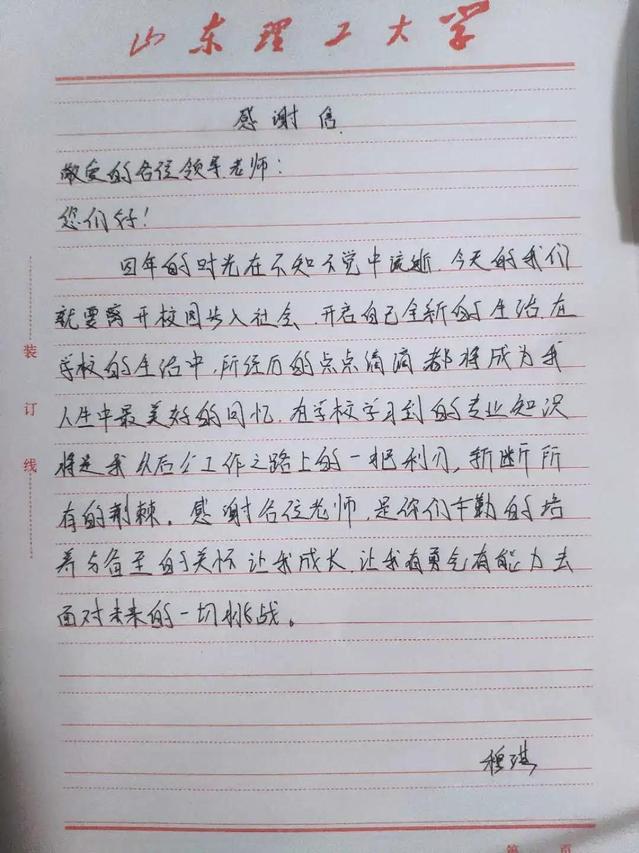 山东理工大学
感谢信
敬爱的各位领导老师：
您们好！
四年的时光在不知不觉中流逝.今天的我们
就要离开校园步入社会.开启自己全新的生活.在
学校的生活中.所经历的点点滴滴都将成为我
人生中最美好的回忆.在学校学习到的专业知识
将是我从后工作之路上的一把利刃，斩断所
有的荆棘。感谢各位老师.是你们辛勤的培
养与备至的关怀让我成长.让我有勇气有能力去
面对未来的一切挑战。
穆琪
装
订
线
第 页